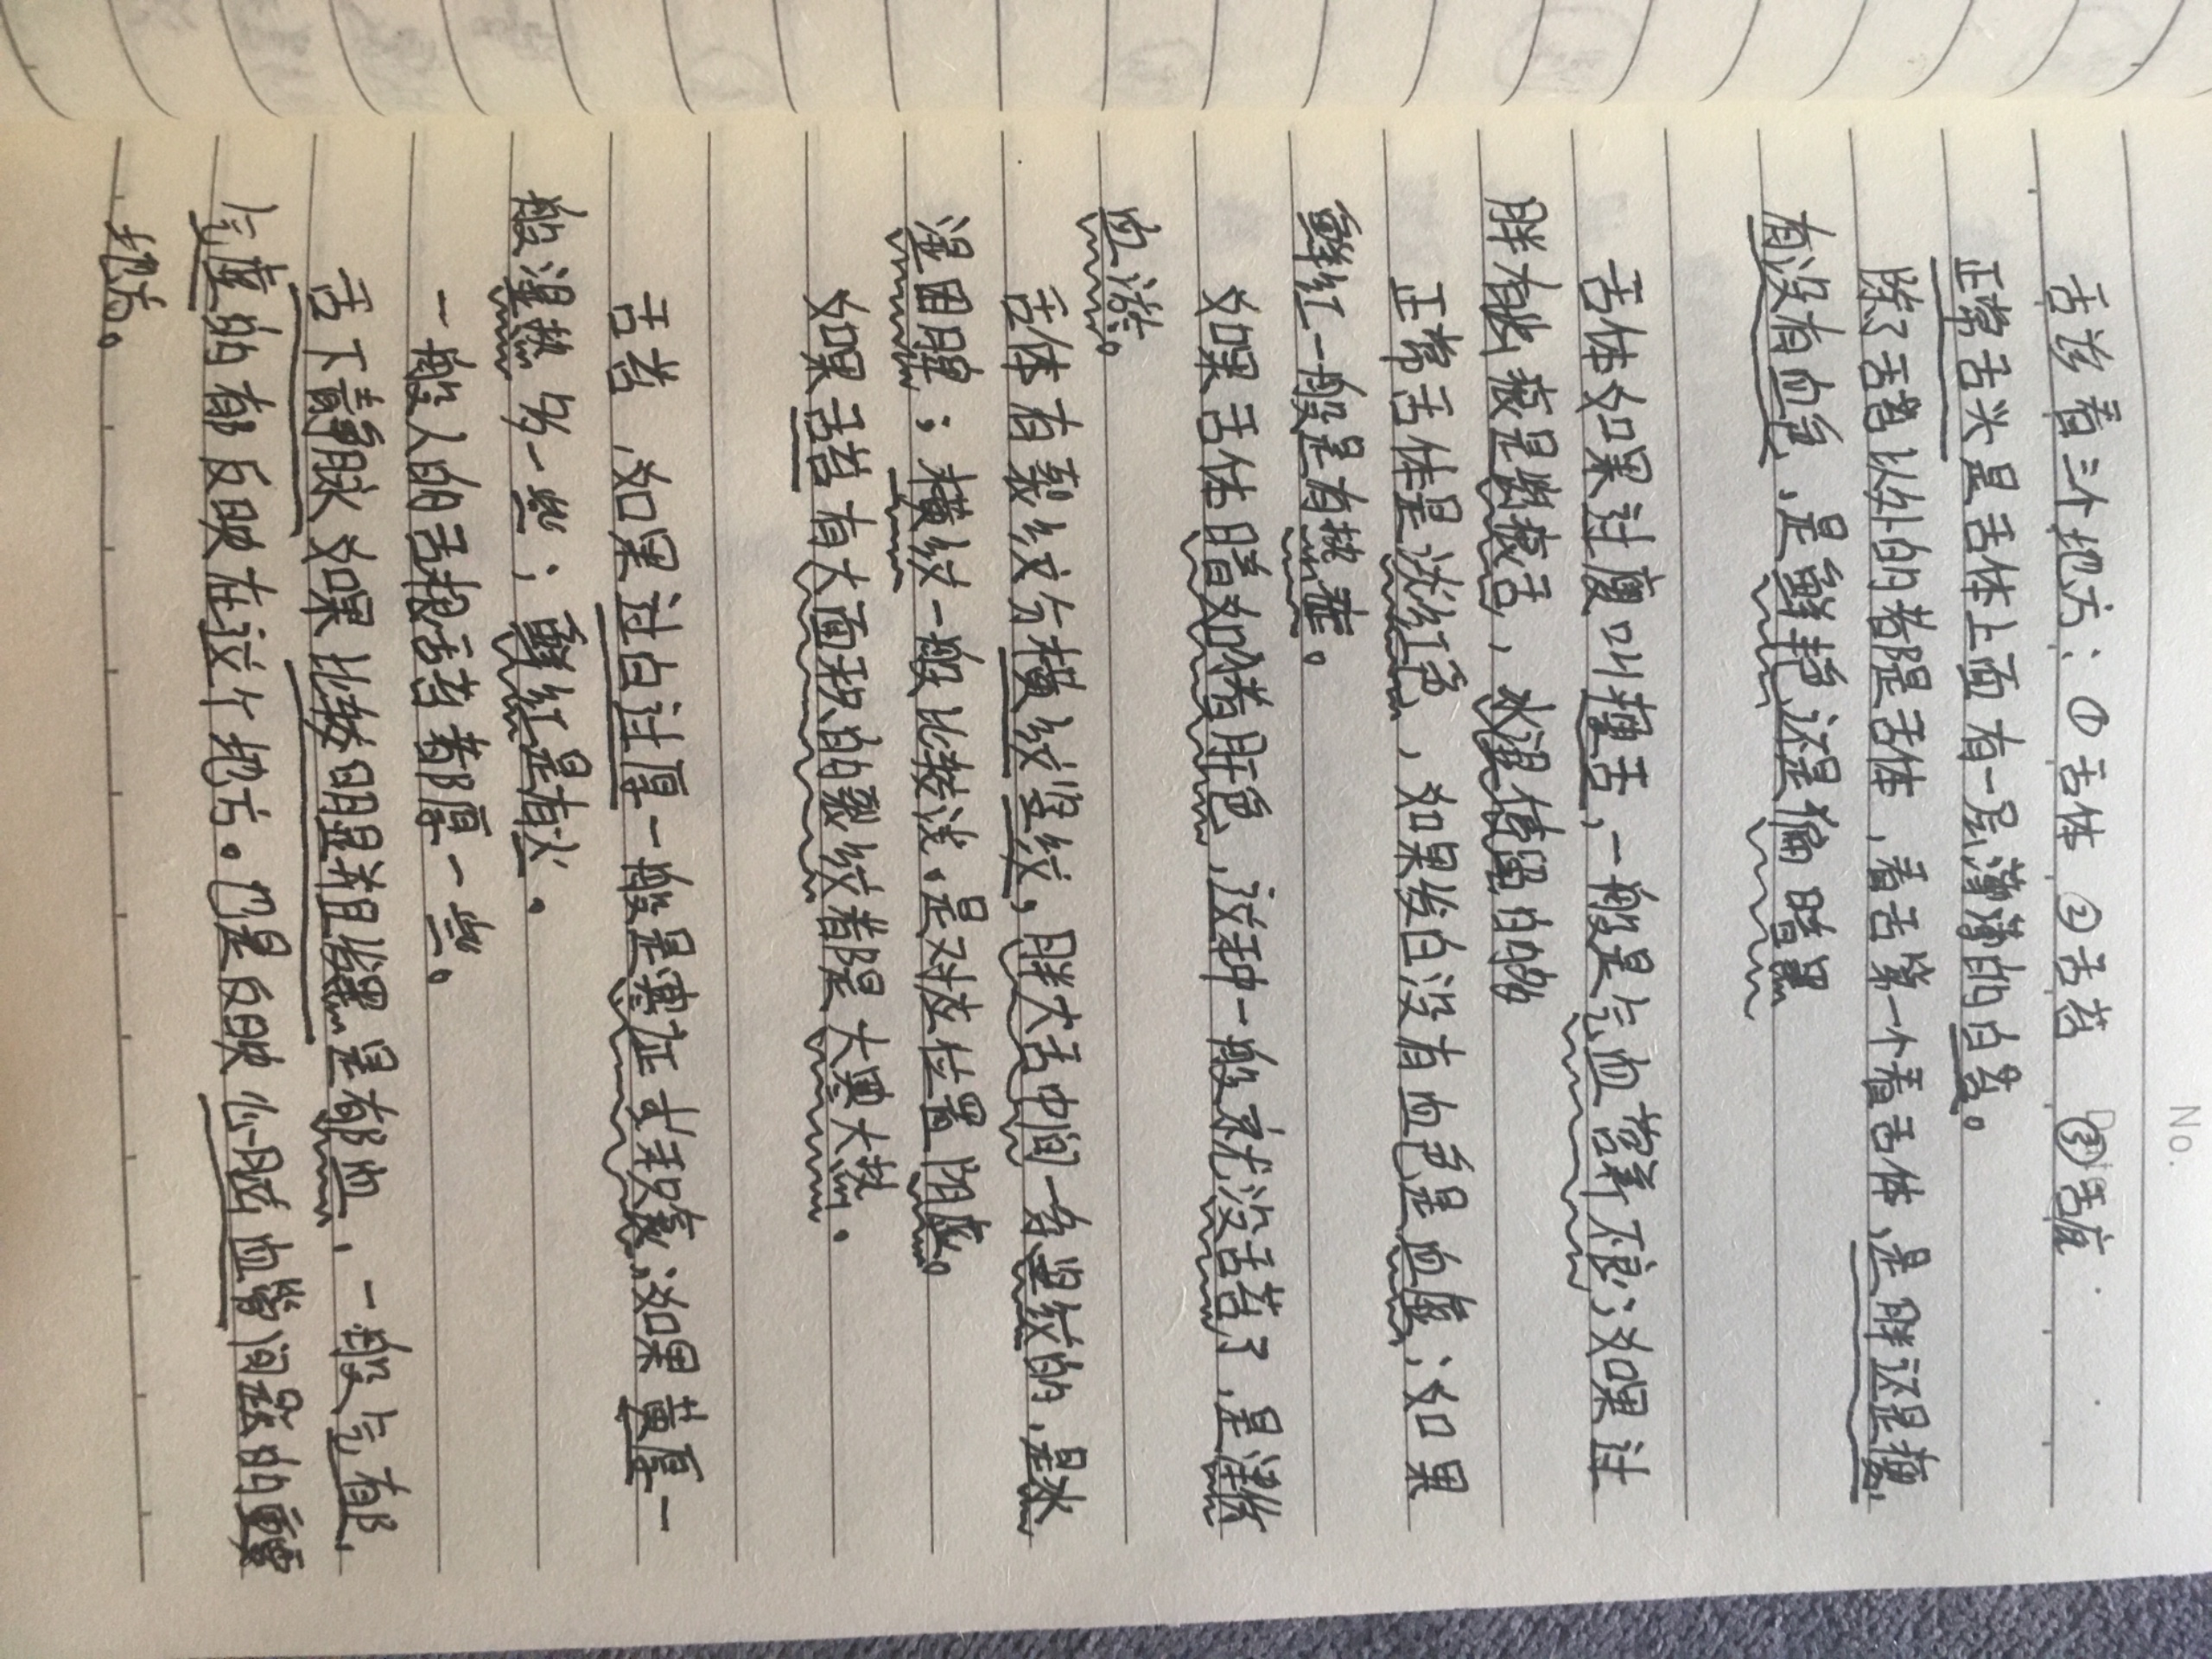 No.
舌诊看三个地方：①舌体 ②舌苔 ③舌底.
正常舌头是舌体上面有一层薄薄的白苔。
除了舌苔以外的都是舌体，看舌第一个看舌体，是胖还是瘦，
有没有血色，是鲜艳还是偏暗黑
舌体如果过瘦叫瘦舌，一般是气血营养不良；如果过
胖有齿痕是齿痕舌，水湿偏盛的
正常舌体是淡红色，如果发白没有血色是血虚；如果
鲜红一般是有热毒。
如果舌体暗如猪肝色，这种一般就没舌苔了，是津伤
血淤。
舌体有裂纹分横纹竖纹，胖大舌中间一条竖纹的，是水
湿困脾；横纹一般比较浅，是对应位置阴虚。
如果舌苔有大面积的裂纹都是大寒大热.
舌苔，如果过白过厚一般是寒证
般湿热多一些；鲜红是有火.
一般人的舌根舌苔都厚一些。
舌下静脉如果比较明显粗紫黑是有郁血，一般气郁，
气虚的都反映在这个地方。它是反映心脑血管问题的重要
地方。